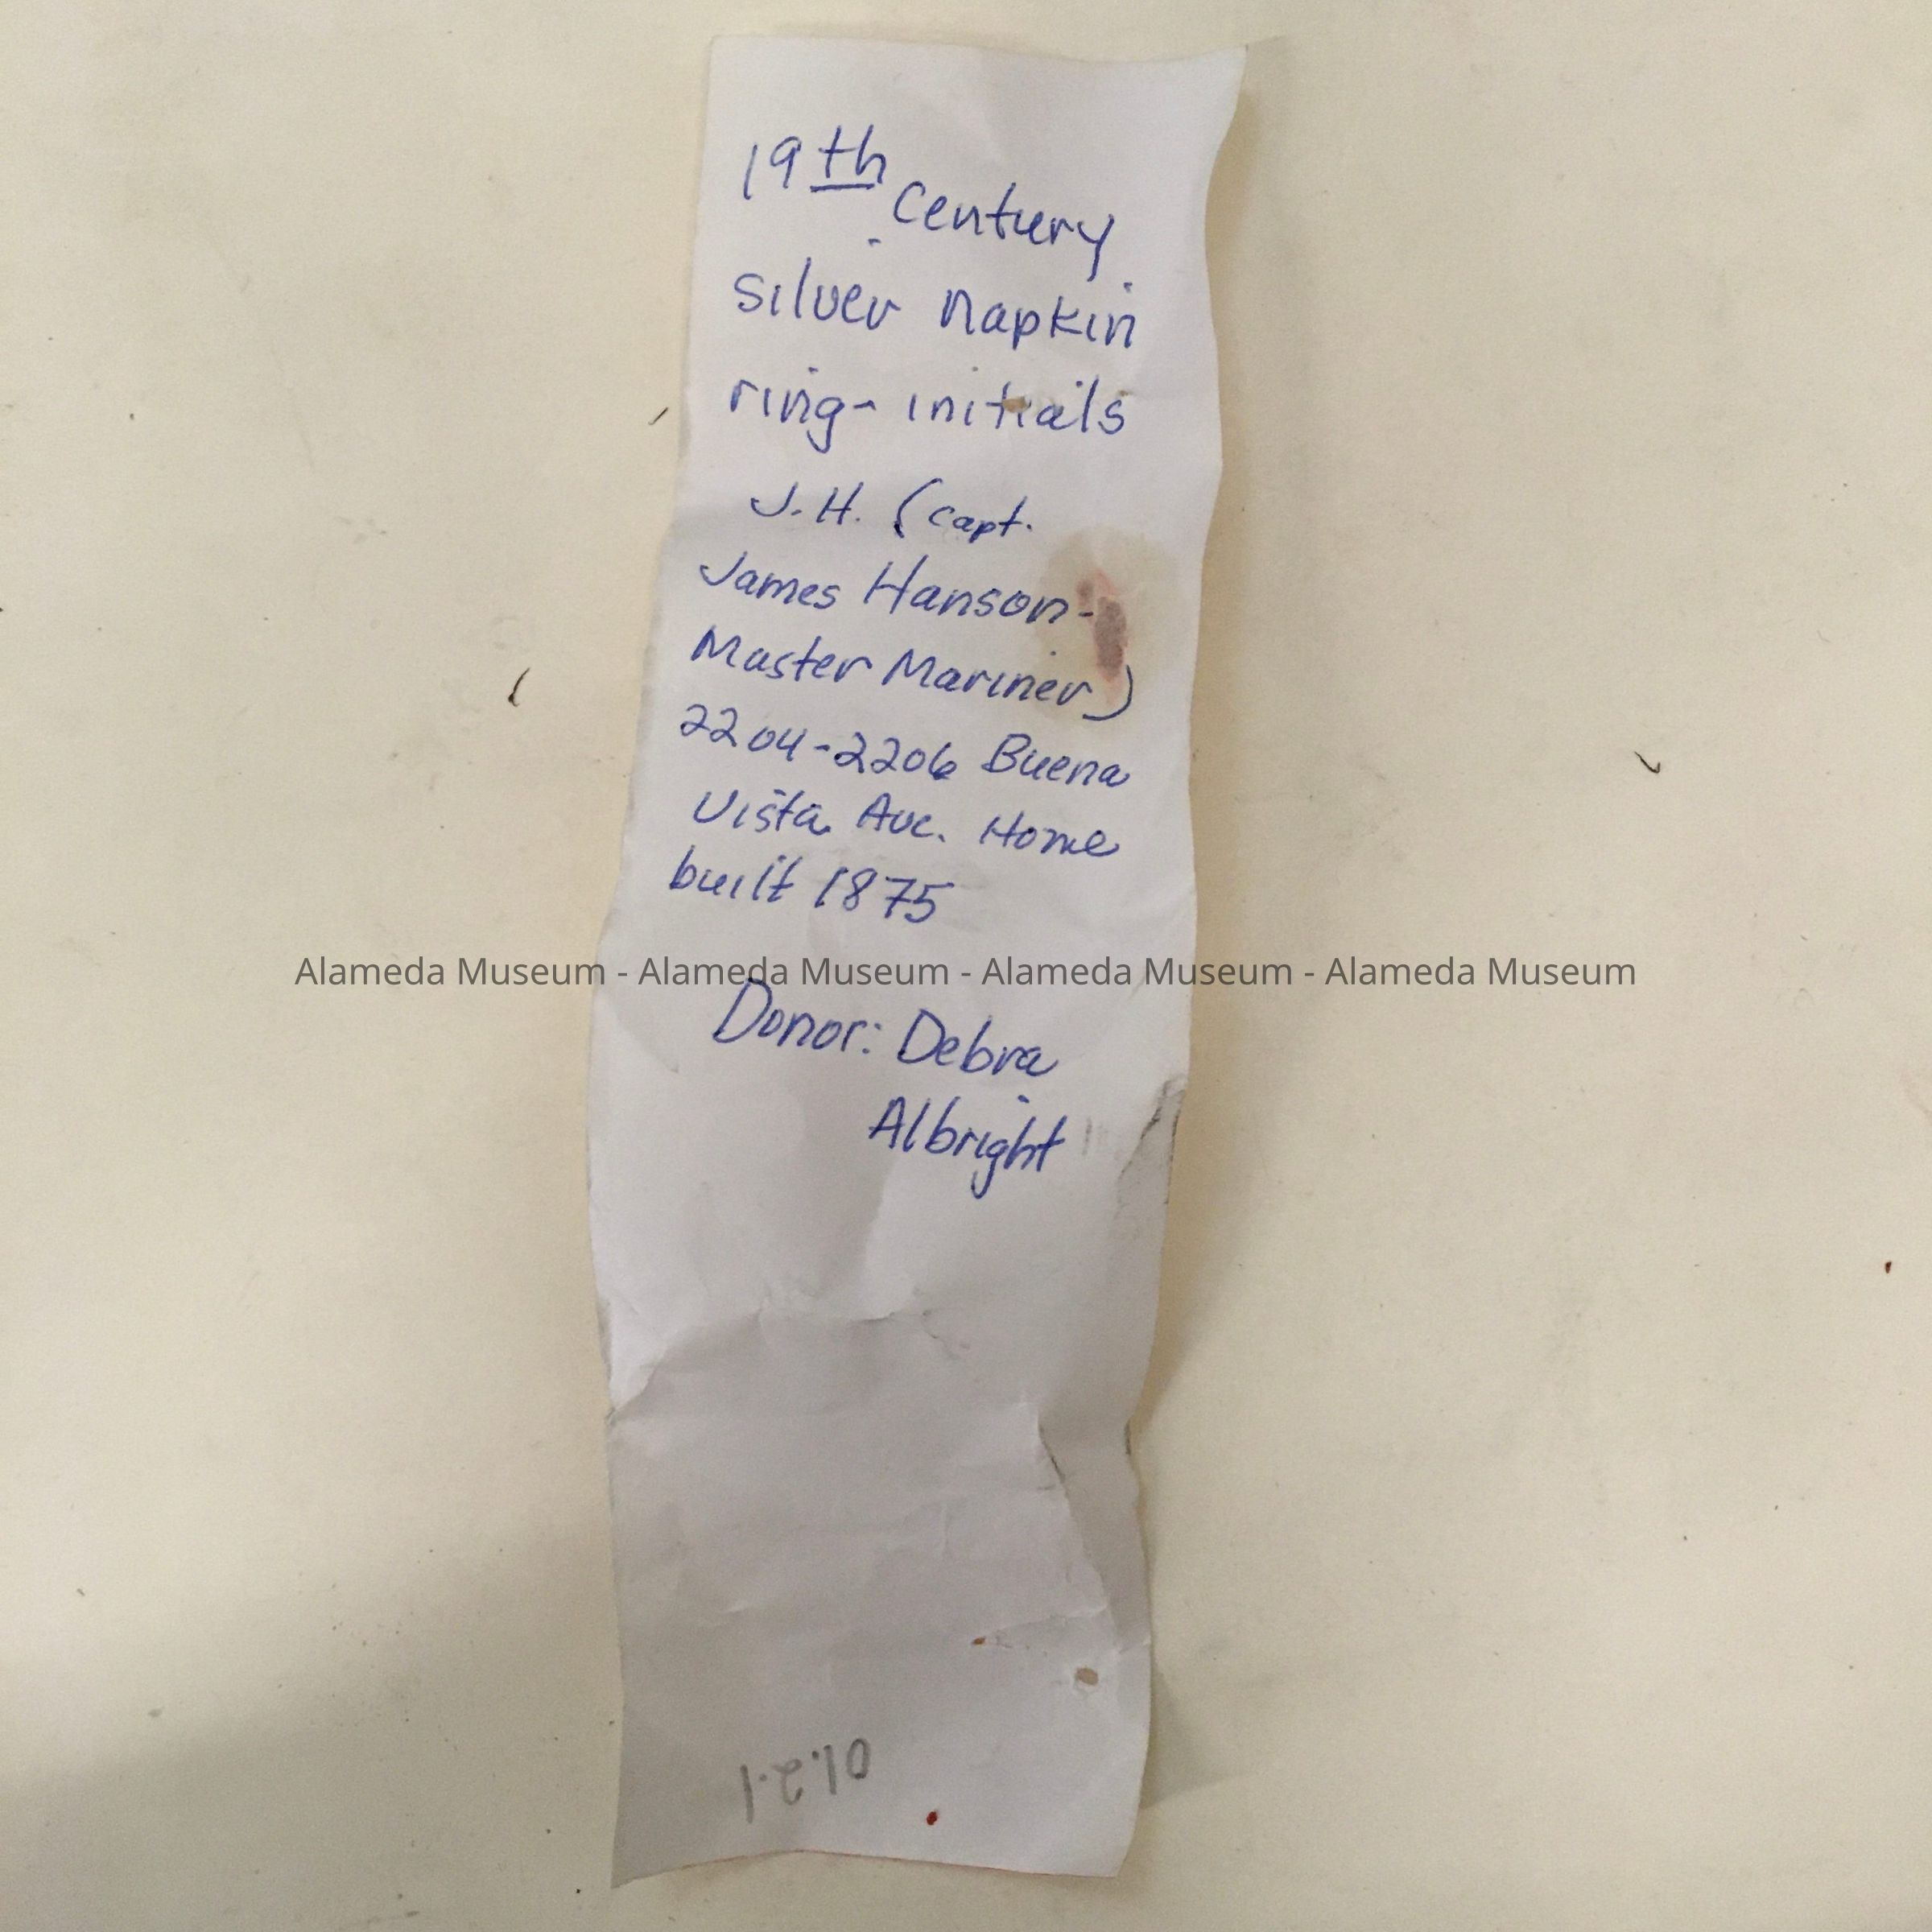 19th century
silver napkin
ring- initials
J.H. (capt.
James Hanson-
Master Mariner)
2204-2206 Buena
Vista Ave. Home
built 1875
Alameda Museum - Alameda Museum - Alameda Museum - Alameda Museum
Donor: Debra
Albright
01.2.1